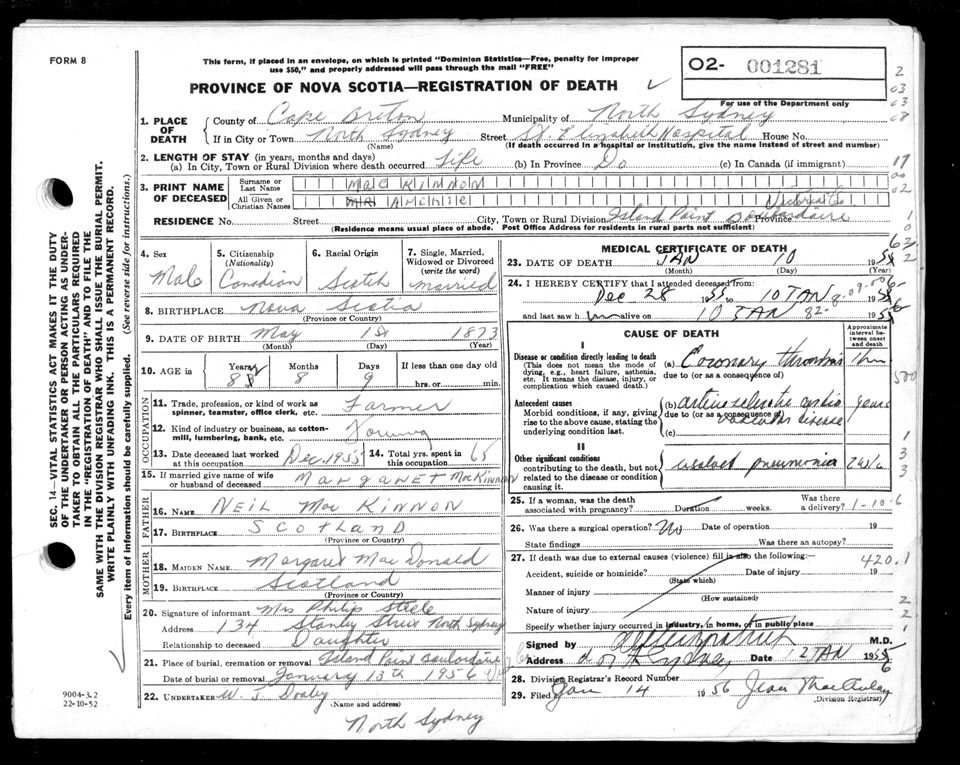 FORM 8
This form, if placed in an envelope, on which is printed "Dominion Statistics—Free, penalty for improper
use $50," and properly addressed will pass through the mail "FREE"
O2- 001281
PROVINCE OF NOVA SCOTIA—REGISTRATION OF DEATH
For use of the Department only
1. PLACE OF DEATH
County of Cape Breton Municipality of North Sydney
If in City or Town North Sydney Street St. Elizabeth Hospital House No.
(Name) (If death occurred in a hospital or institution, give the name instead of street and number)
2. LENGTH OF STAY (in years, months and days)
(a) In City, Town or Rural Division where death occurred Life (b) In Province Do (c) In Canada (if immigrant)
3. PRINT NAME OF DECEASED
Surname or Last Name MacKinnon
All Given or Christian Names Archie
RESIDENCE No. Street City, Town or Rural Division Island Point Province Victoria Co.
(Residence means usual place of abode. Post Office Address for residents in rural parts not sufficient)
4. Sex Male
5. Citizenship (Nationality) Canadian
6. Racial Origin Scotch
7. Single, Married, Widowed or Divorced (write the word) Married
8. BIRTHPLACE Nova Scotia
(Province or Country)
9. DATE OF BIRTH May 1st 1873
(Month) (Day) (Year)
10. AGE in Years Months 8 Days 9 If less than one day old hrs. or min.
OCCUPATION
11. Trade, profession, or kind of work as spinner, teamster, office clerk, etc. Farmer
12. Kind of industry or business, as cotton-mill, lumbering, bank, etc. Farming
13. Date deceased last worked at this occupation Dec. 1955
14. Total yrs. spent in this occupation 65
15. If married give name of wife or husband of deceased Margaret MacKinnon
FATHER
16. NAME Neil MacKinnon
17. BIRTHPLACE SCOTLAND
(Province or Country)
MOTHER
18. MAIDEN NAME Margaret MacDonald
19. BIRTHPLACE Scotland
(Province or Country)
20. Signature of informant Mrs Philip Steele
Address 134 Stanley Street North Sydney
Relationship to deceased Daughter
21. Place of burial, cremation or removal Island Point
Date of burial or removal January 13th 1956
22. UNDERTAKER W. J. Dooley
(Name and address)
North Sydney
MEDICAL CERTIFICATE OF DEATH
23. DATE OF DEATH JAN 10 19
(Month) (Day) (Year)
24. I HEREBY CERTIFY that I attended deceased from:
Dec 28 1955 to 10 JAN 19
and last saw him alive on 10 JAN 19
CAUSE OF DEATH
Approximate interval between onset and death
I
Disease or condition directly leading to death
(This does not mean the mode of dying, e.g., heart failure, asthenia, etc. It means the disease, injury, or complication which caused death.)
(a) Coronary thrombosis
due to (or as a consequence of)
Antecedent causes
Morbid conditions, if any, giving rise to the above cause, stating the underlying condition last.
(b) cardio vascular disease years
due to (or as a consequence of)
(c)
II
Other significant conditions
contributing to the death, but not related to the disease or condition causing it.
pneumonia
25. If a woman, was the death associated with pregnancy? Duration weeks. Was there a delivery? 1-10-6
26. Was there a surgical operation? No Date of operation 19
State findings Was there an autopsy?
27. If death was due to external causes (violence) fill in also the following:—
Accident, suicide or homicide? Date of injury 19
(State which)
420.1
Manner of injury
(How sustained)
Nature of injury
Specify whether injury occurred in industry, in home, or in public place
Signed by M.D.
Address Date 12 JAN 19
28. Division Registrar's Record Number
29. Filed Jan 14 1956 Jean MacAulay
(Division Registrar)
SEC. 14—VITAL STATISTICS ACT MAKES IT THE DUTY
OF THE UNDERTAKER OR PERSON ACTING AS UNDER-
TAKER TO OBTAIN ALL THE PARTICULARS REQUIRED
IN THE "REGISTRATION OF DEATH" AND TO FILE THE
SAME WITH THE DIVISION REGISTRAR WHO SHALL ISSUE THE BURIAL PERMIT.
WRITE PLAINLY WITH UNFADING INK. THIS IS A PERMANENT RECORD.
Every item of information should be carefully supplied. (See reverse side for instructions.)
9004-3.2
22-10-52